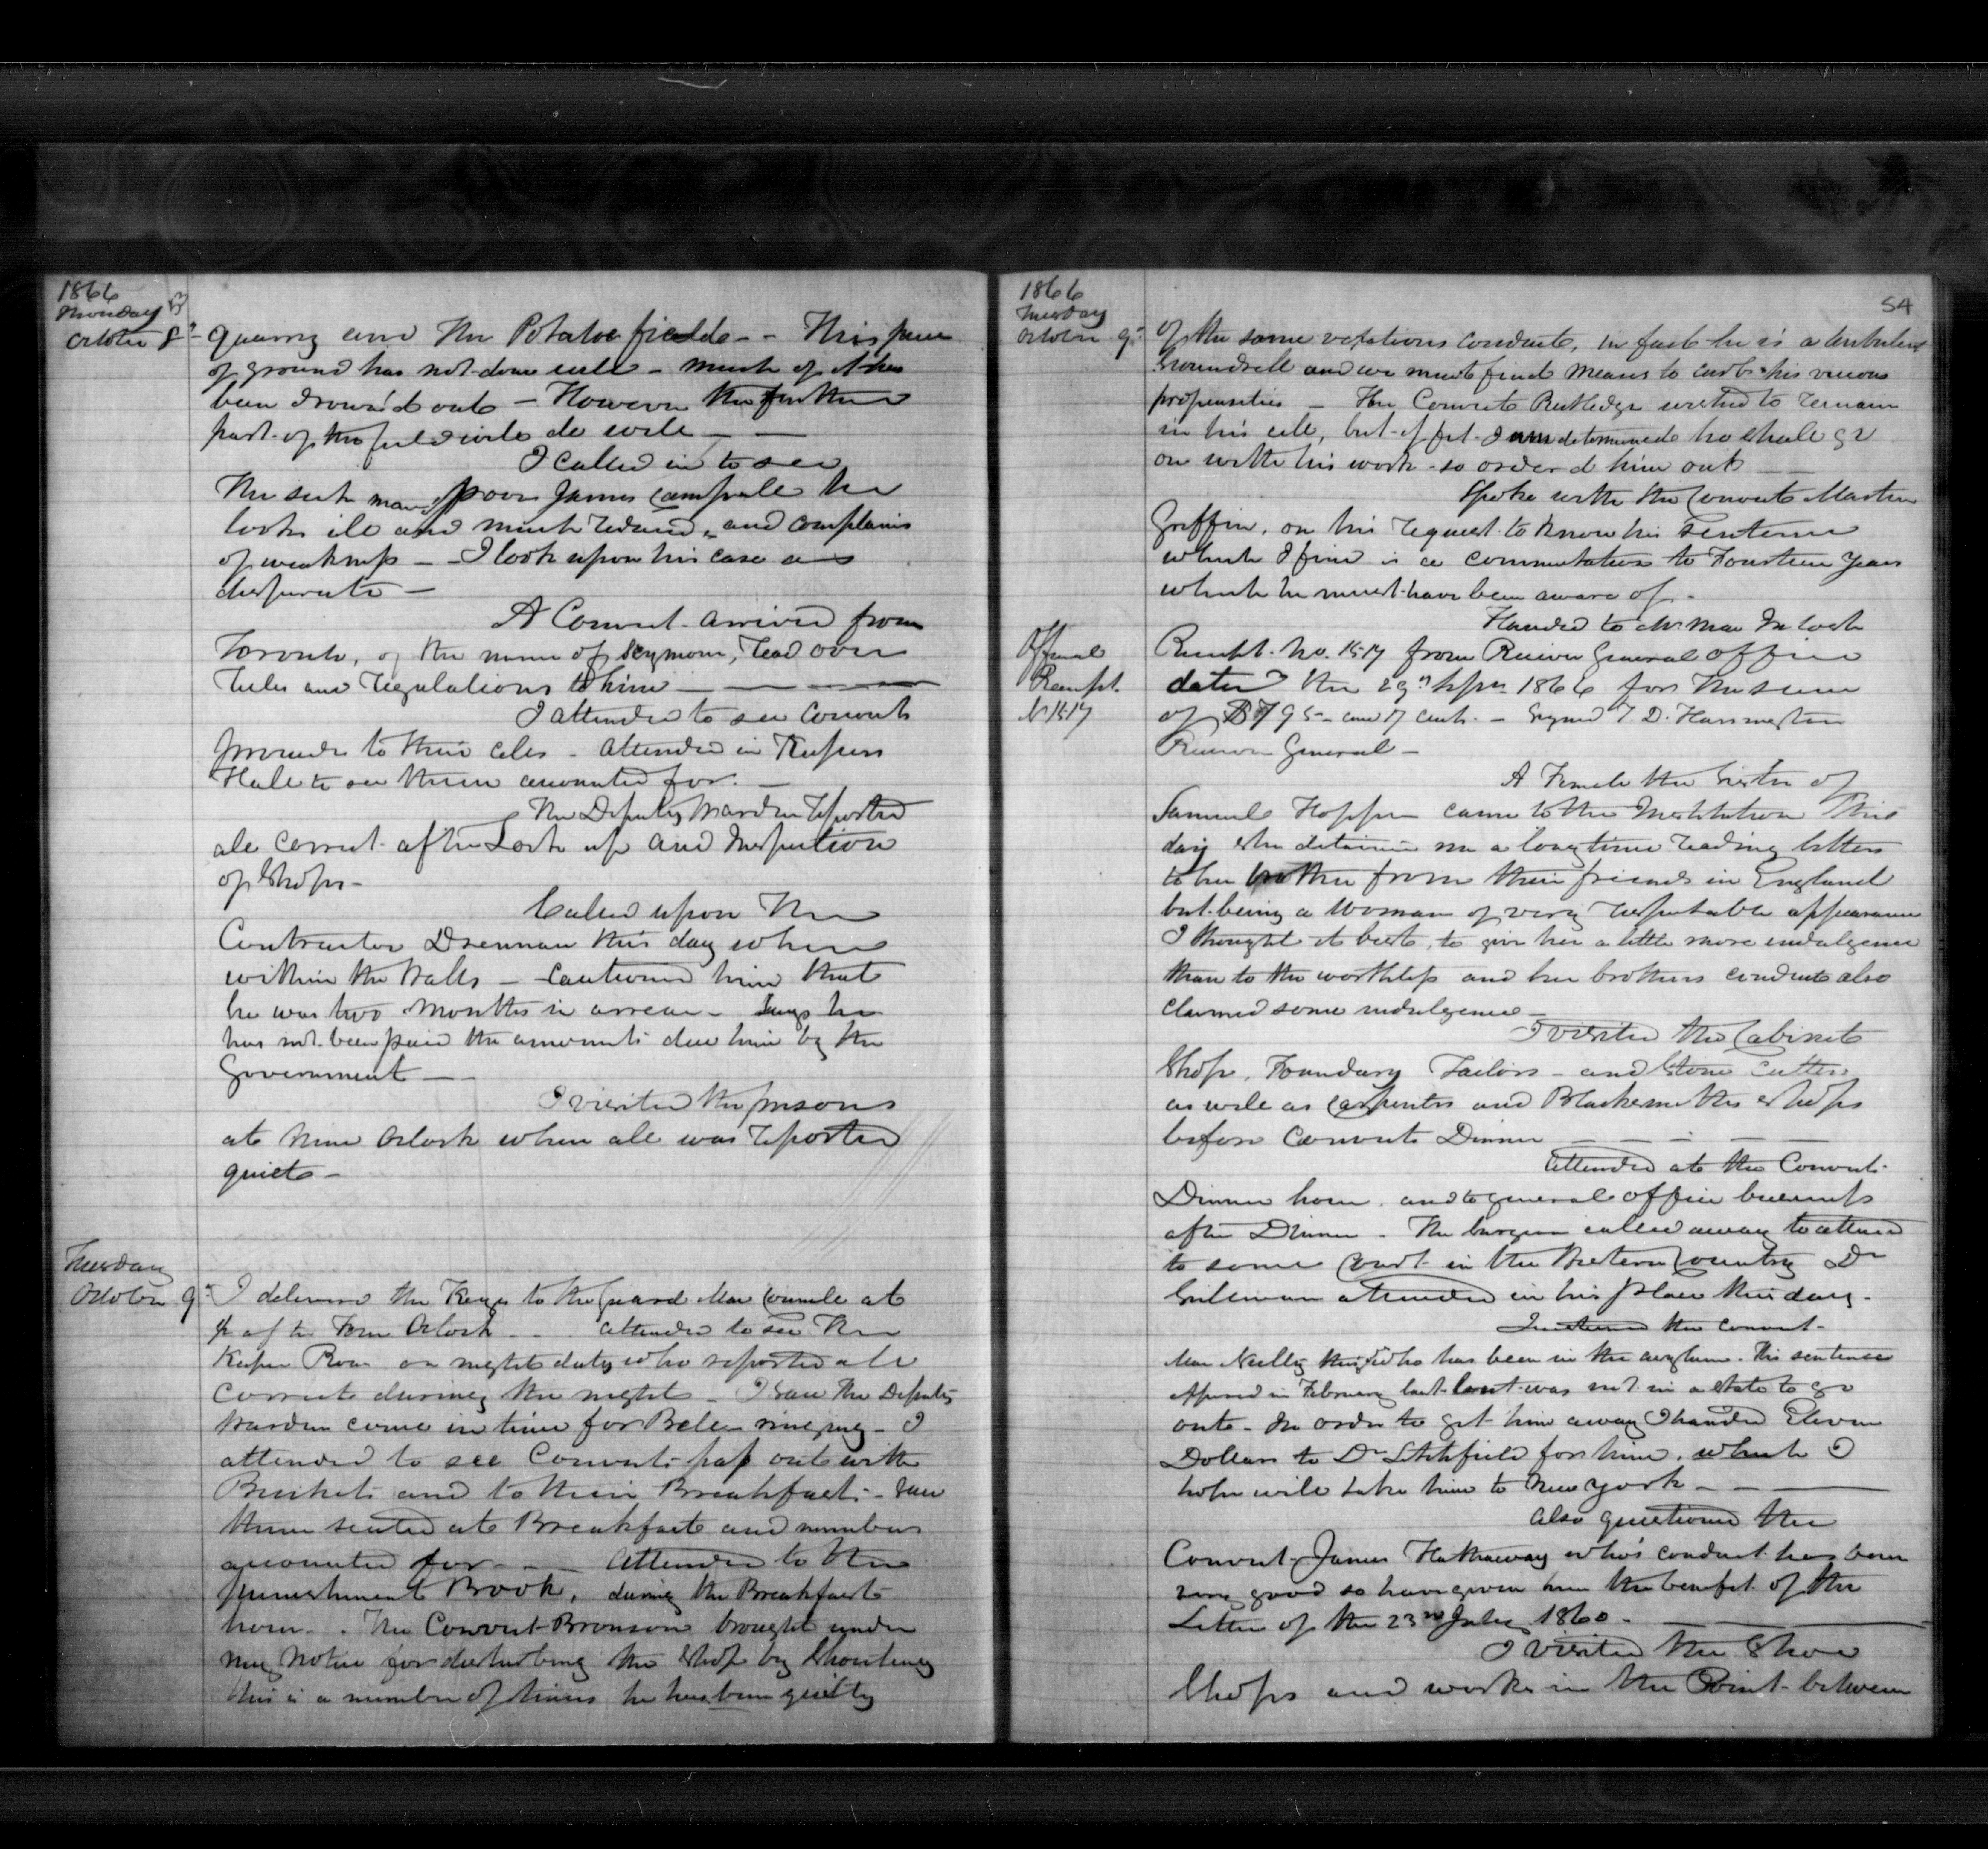 1866
Monday
October 8th
quarry and the Potatoe fields - - This piece
of ground has not done well - much of it has
been drown'd out - However the further
part of the field will do well - -
I called in to see
the sick man poor James Campbell he
looks ill and much reduced, and complains
of weakness - - I look upon his case as
desperate -
A Convict arrived from
Toronto, of the name of Seymour, read over
rules and regulations to him - - -
I attended to see Convicts
proceed to their cells - attended in Keepers
Hall to see them accounted for. -
The Deputy Warden reported
all correct after Lock up and Inspection
of Shops -
Called upon the
Contractor Drennan this day when
within the Walls - cautioned him that
he was two months in arrear - Says he
has not been paid the amounts due him by the
Government -
I visited the prisons
at nine Oclock when all was reported
quiet -
Tuesday
October 9th
I delivered the Keys to the Guard at
after Oclock - - attended to see the
Keeper on nights duty who reported all
correct during the night - I saw the Deputy
Warden come in time for Bell ringing - I
attended to see Convicts pass out with
Buckets and to their Breakfast - saw
them seated at Breakfast and numbers
accounted for - - attended to the
punishment Book, during the Breakfast
hour - The Convict Bronson brought under
my notice for disturbing the Shop by Shouting
this is a number of times he has been guilty
54
1866
Tuesday
October 9th
of the same vexatious conduct, in fact he is a turbulent
Scoundrell and we must find means to curb his vicious
propensities - The Convict Rutledge wished to remain
in his cell, but if fit I am determined he shall go
on with his work - so order'd him out - -
Spoke with the Convict Martin
Griffin, on his request to know his sentence
which I find is a commutation to Fourteen years
which he must have been aware of. -
Handed to Mr
Official
Receipt
No 1517
Receipt No. 1517 from Receiver General Office
dated the 29th Septr 1866 for the sum
of $ 795 - and 17 cents. - Signed T. D. Harrington
Receiver General -
A Female the Sister of
Samuel Hopper came to the Institution this
day she detained me a long time reading letters
to her brother from their friends in England
but being a woman of very respectable appearance
I thought it best, to give her a little more indulgence
than to the worthless and her brothers conduct also
claimed some indulgence -
I visited the Cabinet
Shop, Foundary Tailors - and Stone Cutters
as well as Carpenters and Blacksmiths Shops
before Convicts Dinner - - - - -
attended at the Convicts
Dinner hour, and to general office business
after Dinner - The Surgeon called away to attend
to some Court in the Western Country Dr
attended in his place this day -
the convict -
who has been in the asylum. His sentence
expired in February last but was not in a state to go
out - In order to get him away I handed Eleven
Dollars to Dr Litchfield for him, which I
hope will take him to New York - - -
Also questioned the
Convict James Hathaway who's conduct has been
very good so have given him the benefit of the
Letter of the 23rd July 1860 - -
I visited the Shoe
Shops and works in the Point between